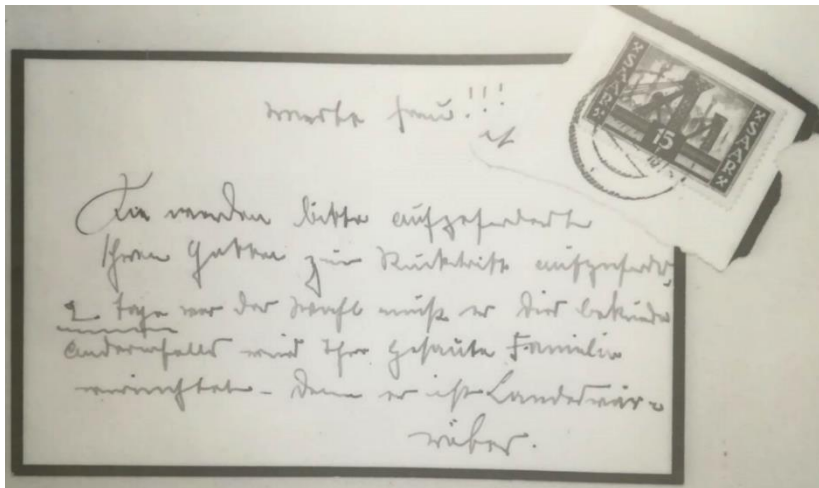 SAAR
15
SAAR
werte Frau!!!
Sie werden bitte aufgefordert
Ihren Gatten zum Rücktritt aufzuforde
2 Tage vor der Wahl muß er dies bekunde
andernfalls wird Ihre gesamte Familie
vernichtet - denn er ist Landesver-
räter.